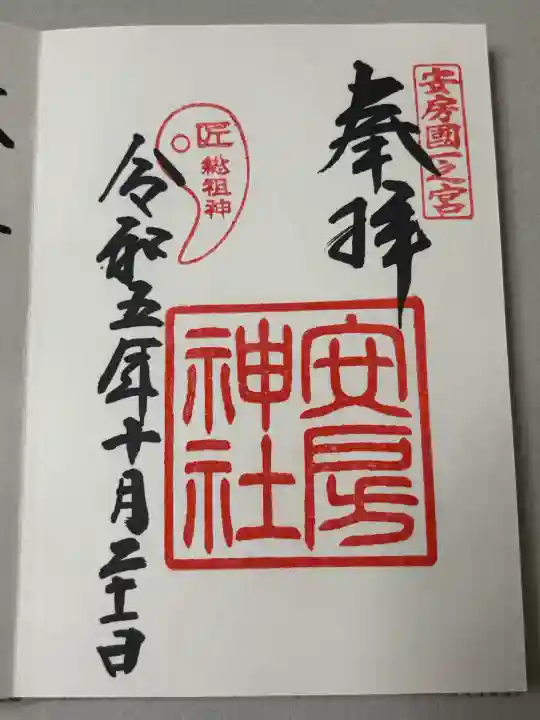 安房國一之宮
奉拝
安房
神社
匠
総祖神
令和五年十月二十一日